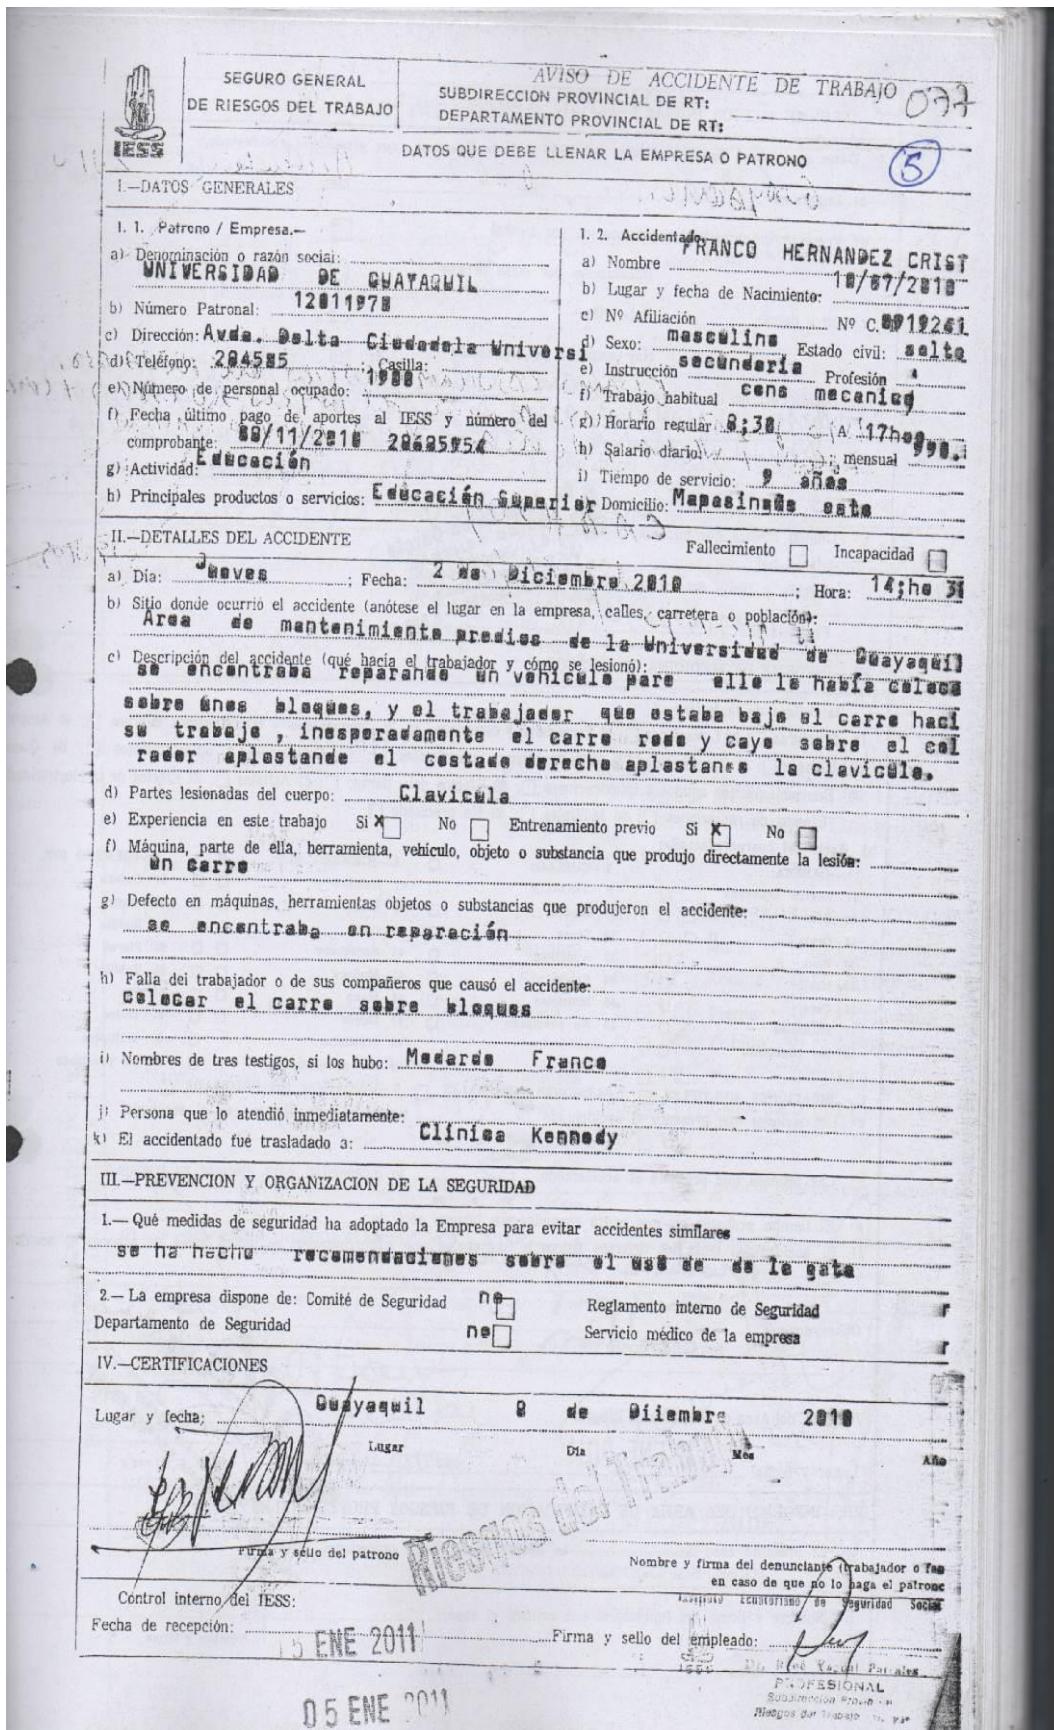 IESS
SEGURO GENERAL
DE RIESGOS DEL TRABAJO
AVISO DE ACCIDENTE DE TRABAJO
077
SUBDIRECCION PROVINCIAL DE RT:
DEPARTAMENTO PROVINCIAL DE RT:
DATOS QUE DEBE LLENAR LA EMPRESA O PATRONO
5
I.—DATOS GENERALES
1. 1. Patrono / Empresa.—
a) Denominación o razón social:
UNIVERSIDAD DE GUAYAQUIL
b) Número Patronal: 12011970
c) Dirección: Avda. Delta Ciudadela Universi
d) Teléfono: 284505 ; Casilla:
e) Número de personal ocupado: 1980
f) Fecha último pago de aportes al IESS y número del
comprobante: /11/2010
g) Actividad: Educación
h) Principales productos o servicios: Educación Superior
1. 2. Accidentado.
a) Nombre FRANCO HERNANDEZ CRIST
b) Lugar y fecha de Nacimiento: 10/07/2010
c) Nº Afiliación Nº C.
d) Sexo: masculino Estado civil: solte
e) Instrucción secundaria Profesión
f) Trabajo habitual como mecanico
g) Horario regular 8;30 A 17ho
h) Salario diario mensual 990.
i) Tiempo de servicio: 9 años
Domicilio: Mapasingue este
II.—DETALLES DEL ACCIDENTE Fallecimiento Incapacidad
a) Día: Jueves ; Fecha: 2 de Diciembre 2010 ; Hora: 14;ho 3
b) Sitio donde ocurrió el accidente (anótese el lugar en la empresa, calles, carretera o población):
Area de mantenimiento predios de la Universidad de Guayaquil
c) Descripción del accidente (qué hacía el trabajador y cómo se lesionó):
se encontraba reparando un vehículo para ello lo había coloca
sobre unos bloques, y el trabajador que estaba bajo el carro haci
su trabajo , inesperadamente el carro rodo y cayo sobre el col
rador aplastando el costado derecho aplastanes la clavicula.
d) Partes lesionadas del cuerpo: Clavicula
e) Experiencia en este trabajo Si X No Entrenamiento previo Si X No
f) Máquina, parte de ella, herramienta, vehículo, objeto o substancia que produjo directamente la lesión:
un carro
g) Defecto en máquinas, herramientas objetos o substancias que produjeron el accidente:
se encontraba en reparación
h) Falla del trabajador o de sus compañeros que causó el accidente:
colocar el carro sobre bloques
i) Nombres de tres testigos, si los hubo: Medardo Franco
j) Persona que lo atendió inmediatamente:
k) El accidentado fué trasladado a: Clínica Kennedy
III.—PREVENCION Y ORGANIZACION DE LA SEGURIDAD
1.— Qué medidas de seguridad ha adoptado la Empresa para evitar accidentes similares
se ha hecho recomendaciones sobre el uso de de la gata
2.— La empresa dispone de: Comité de Seguridad no Reglamento interno de Seguridad
Departamento de Seguridad no Servicio médico de la empresa
IV.—CERTIFICACIONES
Lugar y fecha; Guayaquil 9 de Diiembre 2010
Lugar Día Mes Año
Riesgos del Trabajo
Firma y sello del patrono
Nombre y firma del denunciante (trabajador o fam
en caso de que no lo haga el patrono
Instituto Ecuatoriano de Seguridad Social
Control interno del IESS:
Fecha de recepción: 5 ENE 2011
Firma y sello del empleado:
PROFESIONAL
Riesgos del Trabajo
05 ENE 2011